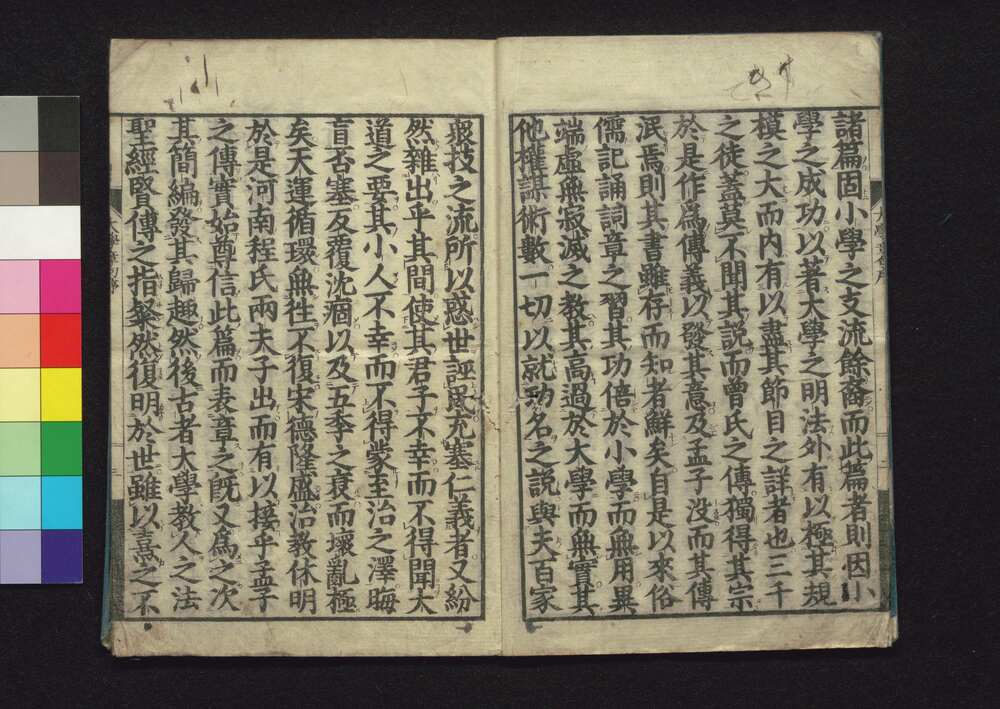 諸篇固小學之支流餘裔而此篇者則因小
學之成功以著大學之明法外有以極其規
模之大而内有以盡其節目之詳者也三千
之徒蓋莫不聞其説而曾氏之傳獨得其宗
於是作爲傳義以發其意及孟子没而其傳
泯焉則其書雖存而知者鮮矣自是以來俗
儒記誦詞章之習其功倍於小學而無用異
端虛無寂滅之教其高過於大學而無實其
他權謀術數一切以就功名之説與夫百家
衆技之流所以惑世誣民充塞仁義者又紛
然雜出乎其間使其君子不幸而不得聞大
道之要其小人不幸而不得蒙至治之澤晦
盲否塞反覆沈痼以及五季之衰而壞亂極
矣天運循環無往不復宋德隆盛治教休明
於是河南程氏兩夫子出而有以接乎孟子
之傳實始尊信此篇而表章之既又爲之次
其簡編發其歸趣然後古者大學教人之法
聖經賢傳之指粲然復明於世雖以熹之不